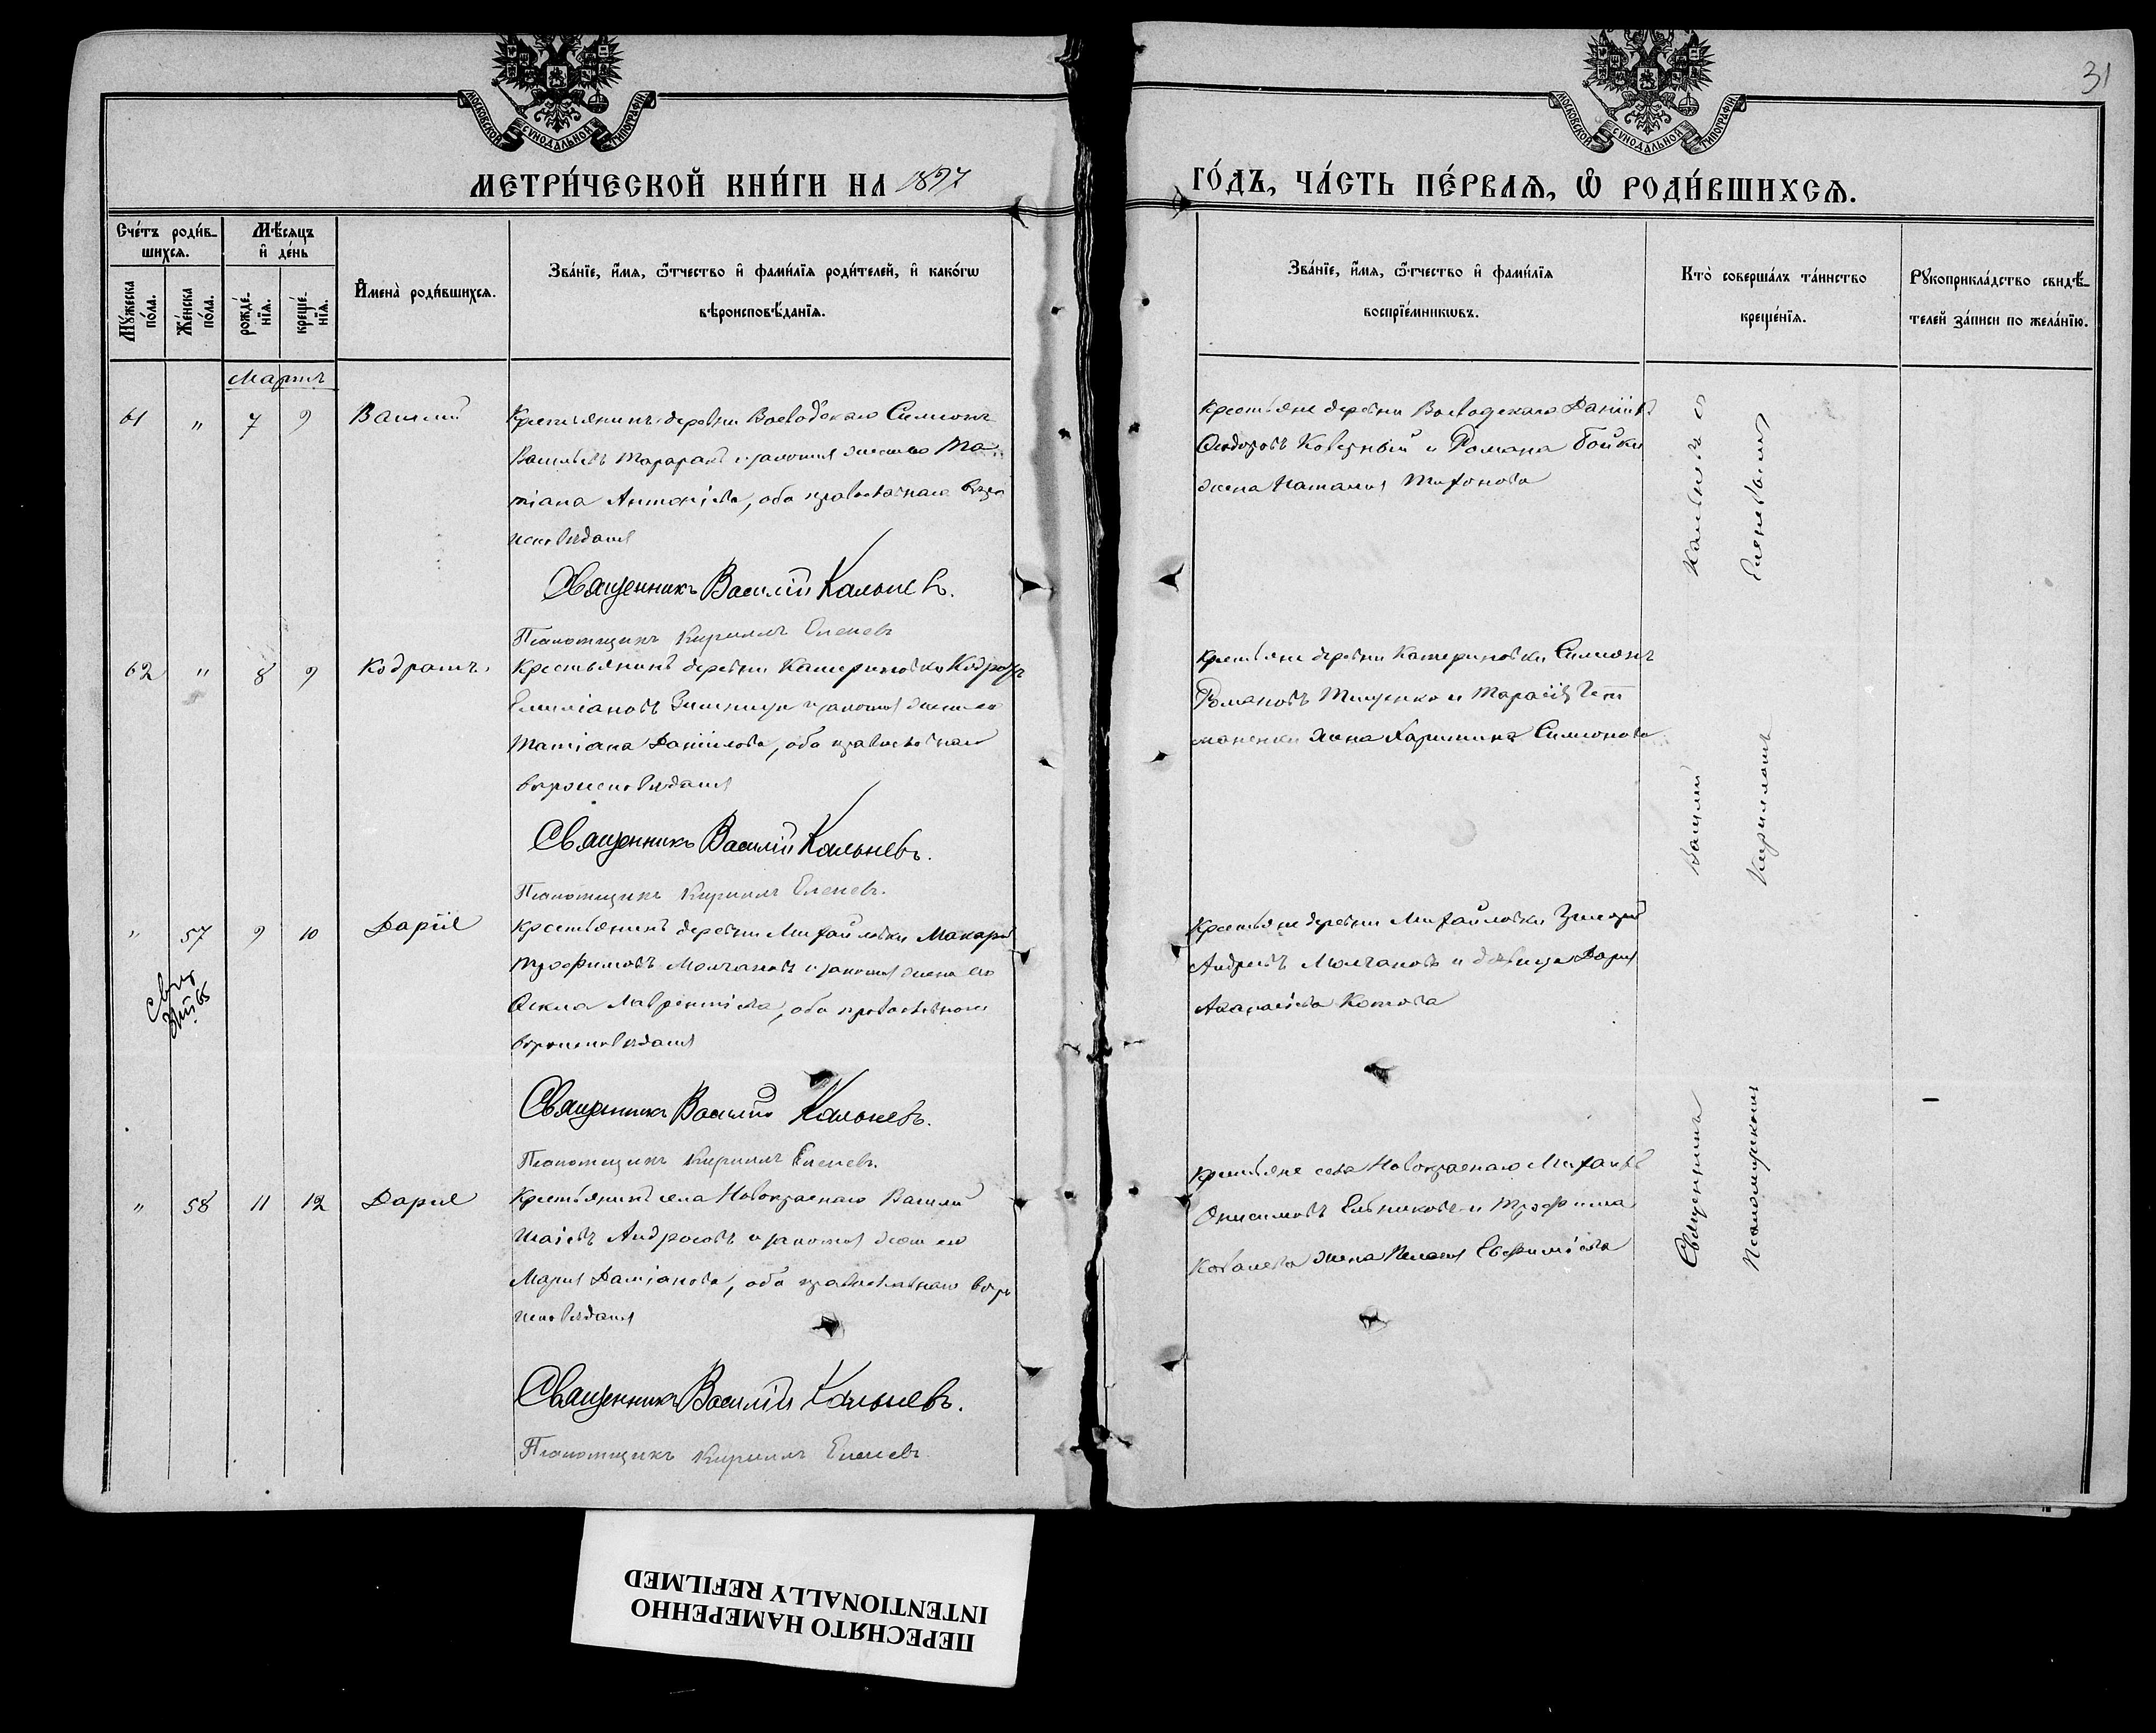 31
МОСКОВСКОЙ СѴНОДАЛЬНОЙ ТИПОГРАФІИ
МОСКОВСКОЙ СѴНОДАЛЬНОЙ ТИПОГРАФІИ
МЕТРИ́ЧЕСКОЙ КНИ́ГИ НА 1897
ГО́ДЪ, ЧА́СТЬ ПЕ́РВАѦ, Ѡ҆ РОДИ́ВШИХСѦ.
Сче́тъ роди́в-
шихсѧ.
Мꙋ́жеска по́ла.
Же́нска по́ла.
Мѣ́сѧцъ
и҆ де́нь
рожде́-
нїѧ.
креще́-
нїѧ.
И҆мена̀ роди́вшихсѧ.
Зва́нїе, и҆́мѧ, ѻ҆́тчество и҆ фами́лїѧ роди́телей, и҆ како́гѡ
вѣроисповѣ́данїѧ.
Зва́нїе, и҆́мѧ, ѻ҆́тчество и҆ фами́лїѧ
воспрїе́мникѡвъ.
Кто̀ соверша́лъ та́инство
креще́нїѧ.
Рꙋкоприкла́дство свидѣ́-
телей за́писи по жела́нїю.
Мартъ
61 " 7 9 Василій
Крестьянинъ деревни Воеводскаго Симеонъ
Васильевъ и законная жена его Та-
тіана Антоніева, оба православнаго вѣро
исповѣданія
Священникъ Василій Кальневъ.
Псаломщикъ Кириллъ Еленевъ
Крестьяне деревни Воеводскаго Даніилъ
Ѳеодоровъ и Романа Бойки
жена Наталія Тихонова
62 " 8 9 Кодратъ
Крестьянинъ деревни Катериновки Кодратъ
Емиліановъ и законная жена его
Татіана Даніилова, оба православнаго
вѣроисповѣданія
Священникъ Василій Кальневъ.
Псаломщикъ Кириллъ Еленевъ.
Крестьяне деревни Катериновки Симеонъ
Романовъ Тищенко и Тарасія
жена Харитина Симеонова
" 57 9 10 Дарія
Крестьянинъ деревни Михайловки Макарій
Трофимовъ Молчановъ и законная жена его
Ѳекла Лаврентіева, оба православнаго
вѣроисповѣданія
Священникъ Василій Кальневъ.
Псаломщикъ Кириллъ Еленевъ.
Крестьяне деревни Михайловки Григорій
Андреевъ Молчановъ и дѣвица Дарія
Аѳанасіева Котова
" 58 11 12 Дарія
Крестьянинъ села Новокраснаго Василій
Исаіевъ Андросовъ и законная жена его
Марія Даміанова, оба православнаго вѣро
исповѣданія
Священникъ Василій Кальневъ.
Псаломщикъ Кириллъ Еленевъ.
Крестьяне села Новокраснаго Михаилъ
Онисимовъ и Трофима
Ковалева жена Пелагія Евфиміева
Священникъ Василій Кальневъ съ
Псаломщикомъ Кирилломъ Еленевымъ
ПЕРЕСНЯТО НАМЕРЕННО
INTENTIONALLY REFILMED